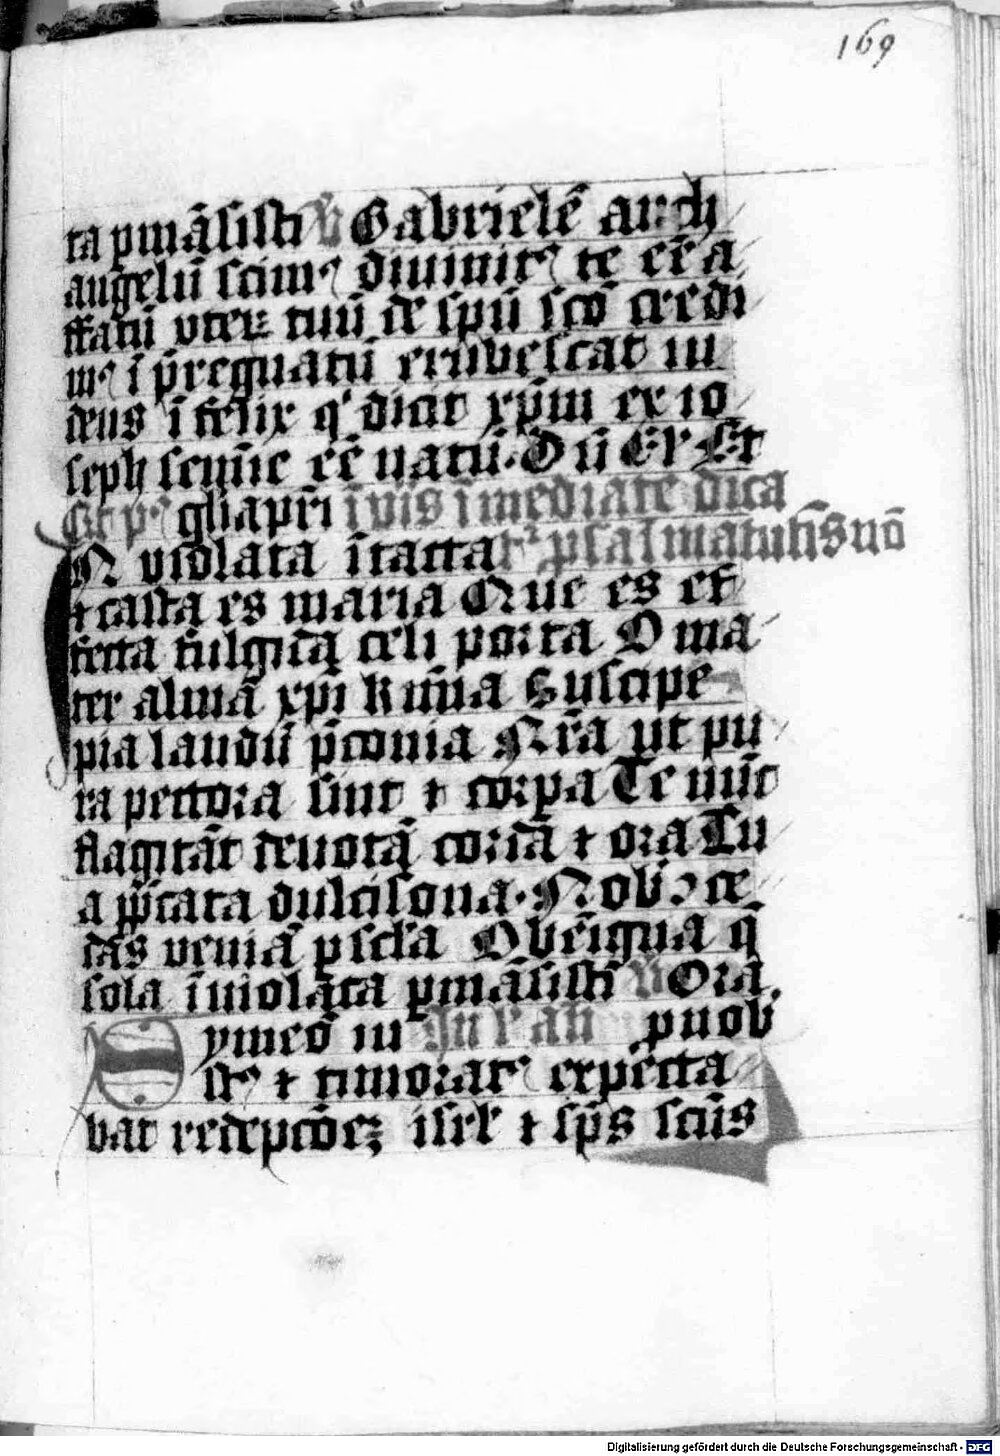 169
ta pmãsisti V Gabrielẽ arch
angelũ scimꝰ diuinitꝰ te eẽ a
ffatũ vterꝫ tuũ de spũ scõ credi
mꝰ ĩpregnatũ erubescat iu
deus ĩfelix qͥ dicit xpm ex io
seph semĩe eẽ natũ. Dũ Et
Et pꝰ gl̃ia pr̃i ĩmediate dica
N violata ĩtacta psal matutĩs nõ
⁊ casta es maria Que es ef
fecta fulgida celi porta O ma
ter alma xp̃i kr̃ma Suscipe
pia laudũ p̃conia Nr̃a ut pu
ra pectora sint ⁊ corpa Te nũc
flagitãt deuota corda ⁊ ora Tu
a p̃cata dulcisona. Nob ↄce
das veniã p scl̃a O benigna q̃
sola ĩuiolata pmãsisti V Ora
Symeõ iu
stꝰ ⁊ timoratꝰ expecta
bat redepcõeꝫ isrl̃ ⁊ sp̃s scũs
Digitalisierung gefördert durch die Deutsche Forschungsgemeinschaft - DFG